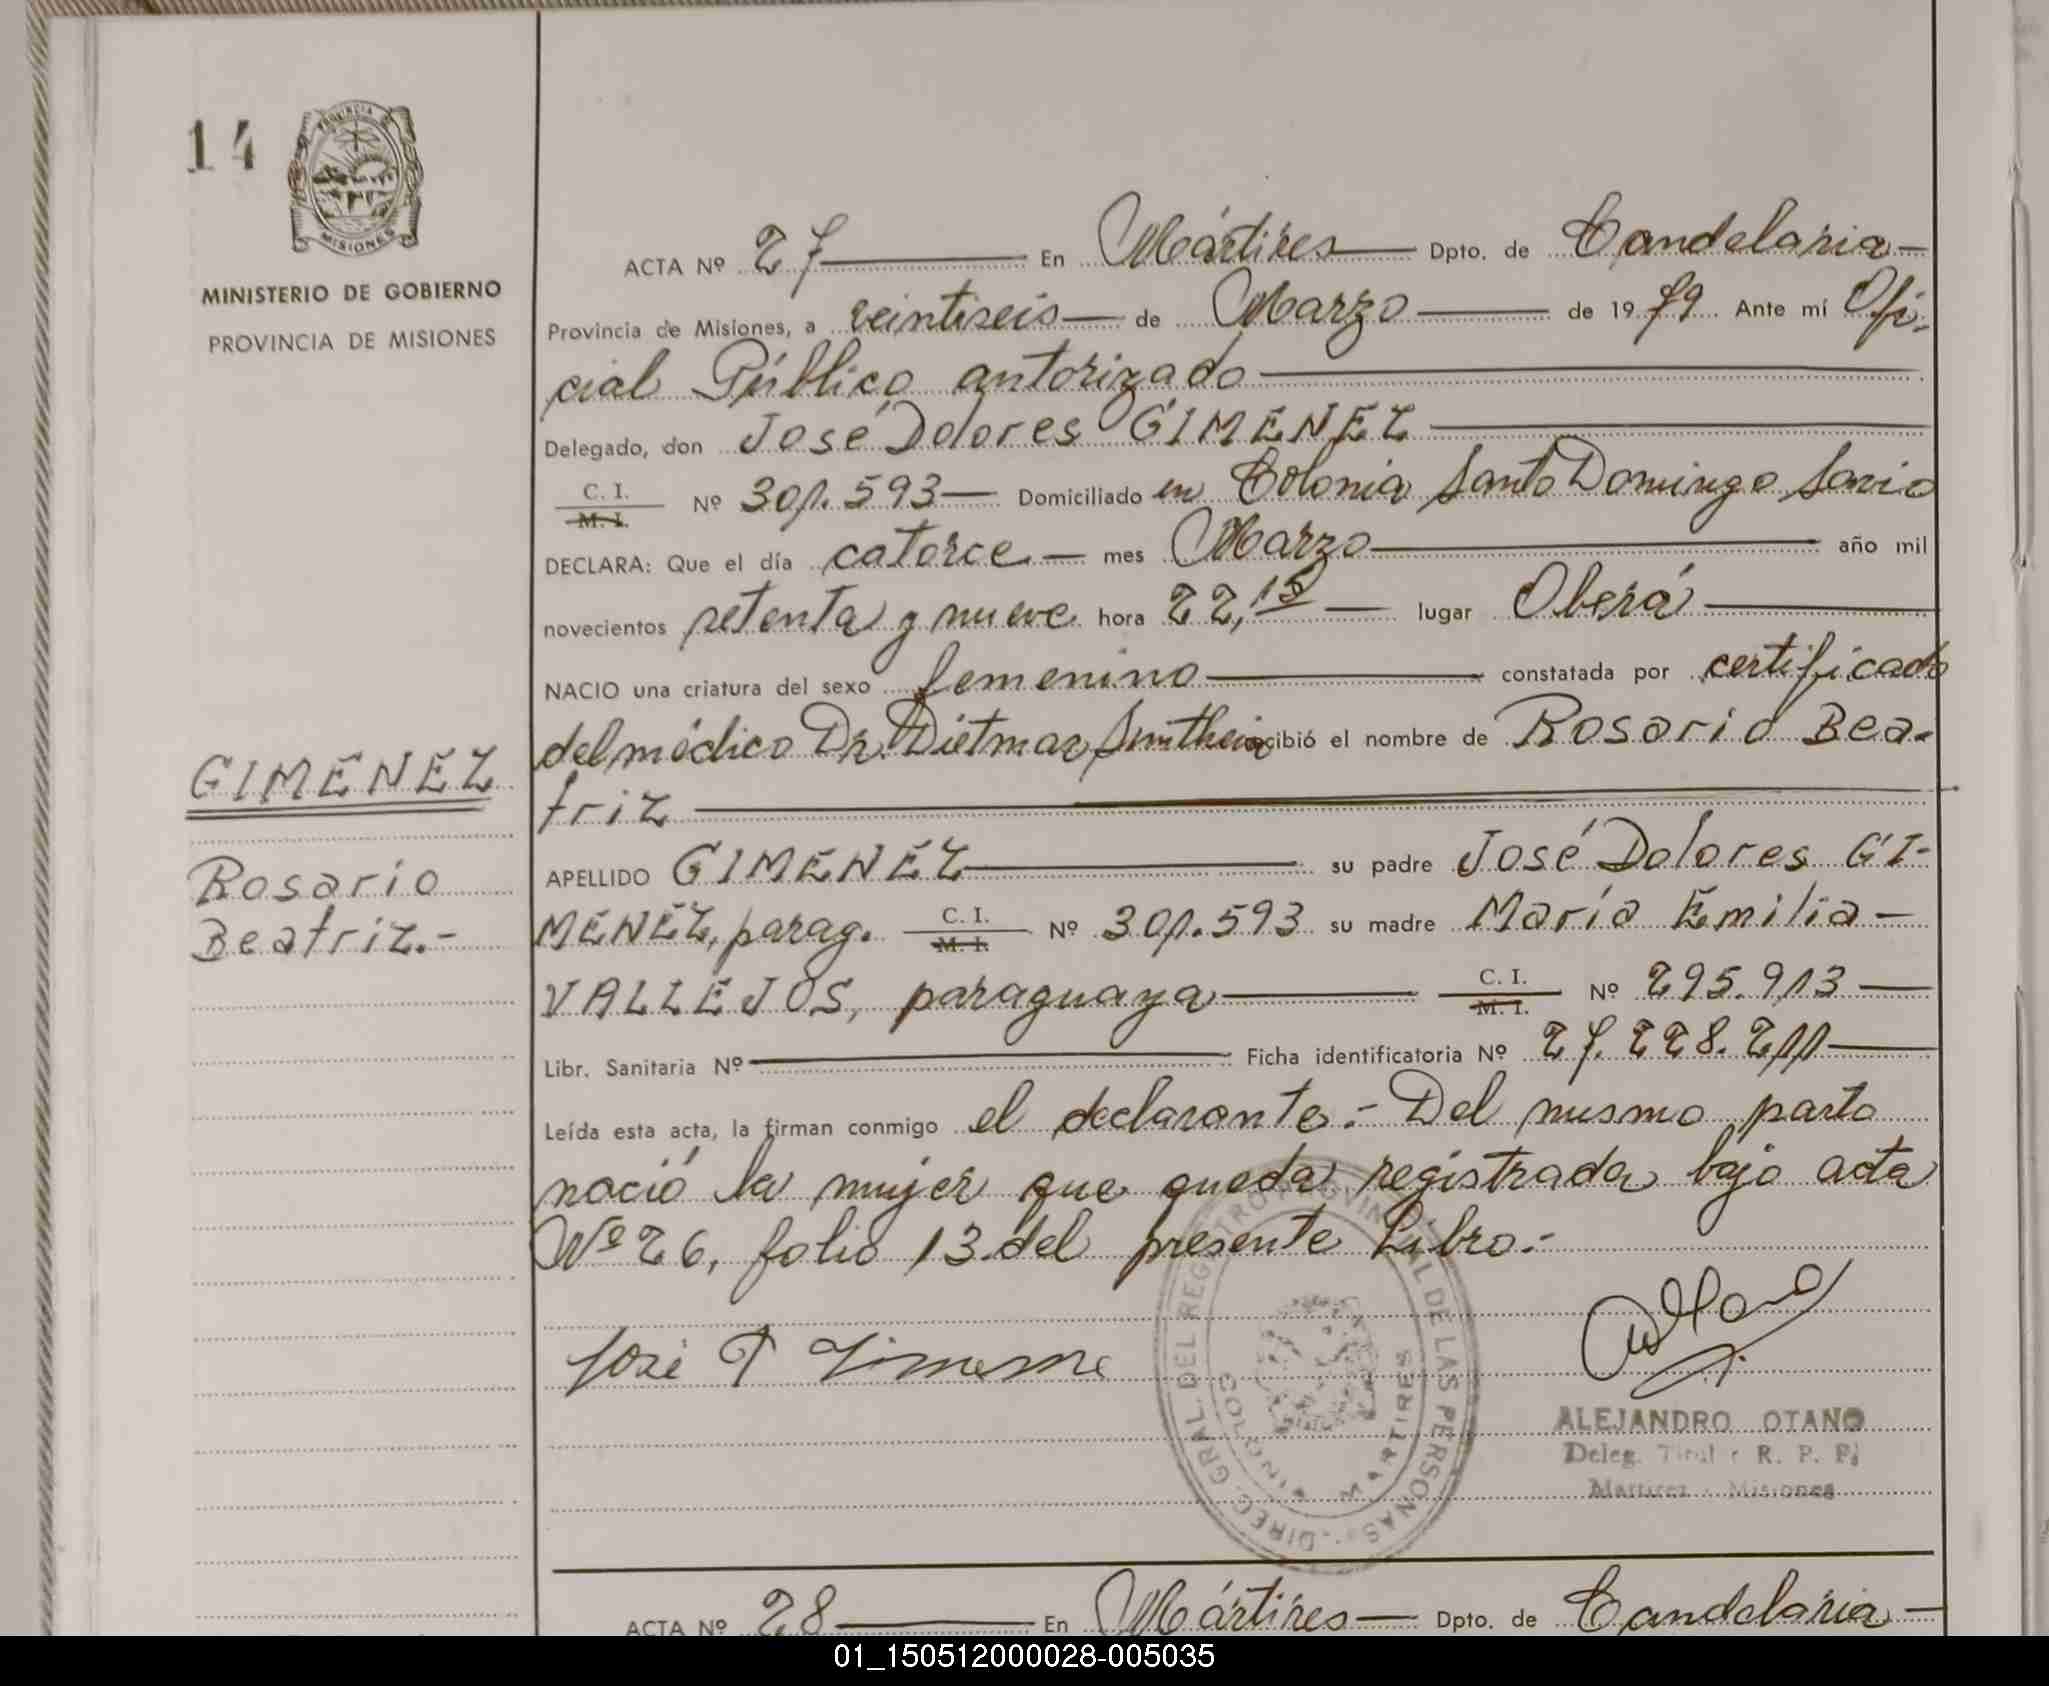 14
PROVINCIA DE
MISIONES
MINISTERIO DE GOBIERNO
PROVINCIA DE MISIONES
ACTA Nº 27 En Mártires Dpto. de Candelaria
Provincia de Misiones, a veintiseis de Marzo de 1979. Ante mí Ofi-
cial Público autorizado
Delegado, don José Dolores GIMÉNEZ
C. I.
M. I. Nº 301.593 Domiciliado en Colonia Santo Domingo Savio
DECLARA: Que el día catorce mes Marzo año mil
novecientos setenta y nueve hora 22,15 lugar Oberá
NACIO una criatura del sexo femenino constatada por certificado
del médico Dr. Dietmar recibió el nombre de Rosario Bea-
triz
GIMÉNEZ
Rosario
Beatriz.-
APELLIDO GIMÉNEZ su padre José Dolores GI-
MÉNEZ, parag. C. I.
M. I. Nº 301.593 su madre María Emilia
VALLEJOS, paraguaya C. I.
M. I. Nº 295.913
Libr. Sanitaria Nº Ficha identificatoria Nº 27.228.211
Leída esta acta, la firman conmigo el declarante.- Del mismo parto
nació la mujer que queda registrada bajo acta
Nº 26, folio 13 del presente Libro.-
José D Jimene
DIREC. GRAL. DEL REGISTRO PROVINCIAL DE LAS PERSONAS
MARTIRES
ALEJANDRO OTANO
Deleg. Titular R. P. P.
Martires - Misiones
ACTA Nº 28 En Mártires Dpto. de Candelaria
01_150512000028-005035